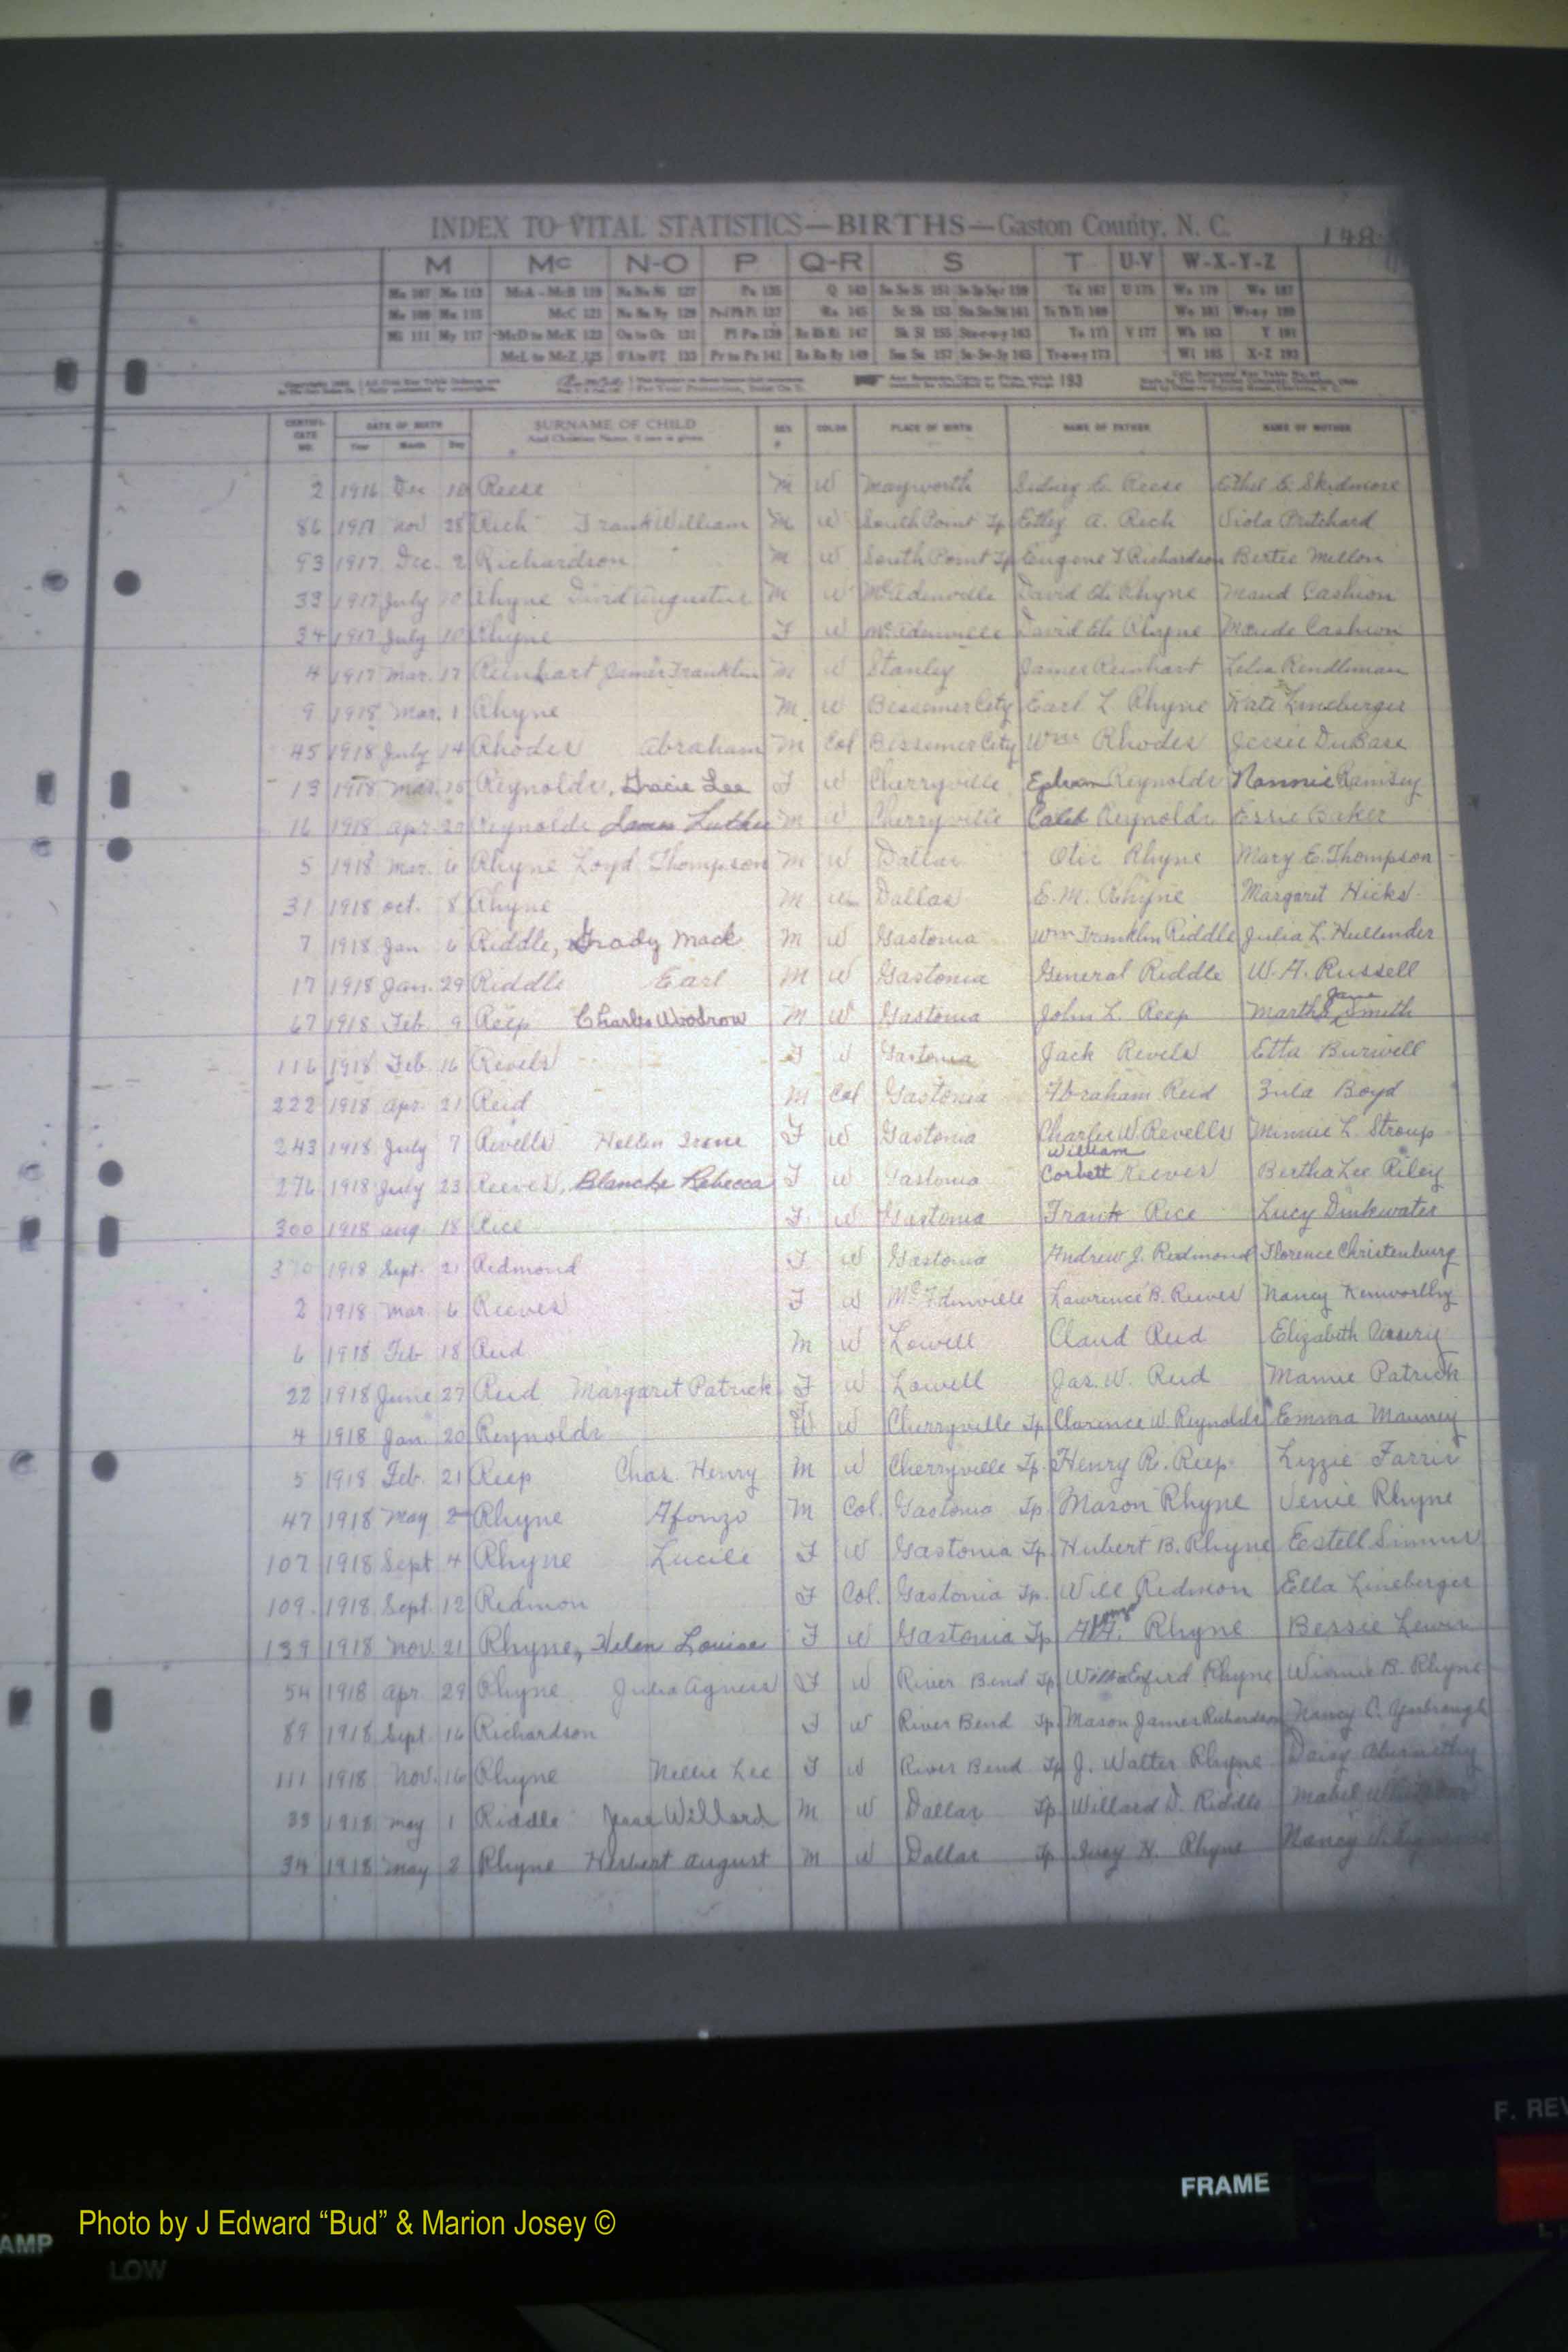 INDEX TO VITAL STATISTICS—BIRTHS—Gaston County, N. C. 148
M Mc N-O P Q-R S T U-V W-X-Y-Z
CERTIFICATE NO. DATE OF BIRTH SURNAME OF CHILD SEX COLOR PLACE OF BIRTH NAME OF FATHER NAME OF MOTHER
Year Month Day And Christian Name, if one is given
2 1916 Dec 10 Reese M W Mayworth Sidney E. Reese Ethel E. Skidmore
86 1917 Nov 28 Rich Frank William M W South Point Tp Etley A. Rich Viola Pritchard
93 1917 Dec. 2 Richardson M W South Point Tp Eugene T Richardson Bertie Mellon
33 1917 July 10 Rhyne David Augustus M W McAdenville David Eli Rhyne Maud Cashion
34 1917 July 10 Rhyne F W McAdenville David Eli Rhyne Maude Cashion
4 1917 Mar. 17 Reinhart James Franklin M W Stanley James Reinhart Lelia Rendleman
9 1918 Mar. 1 Rhyne M W Bessemer City Earl L Rhyne Kate Lineberger
45 1918 July 14 Rhodes Abraham M Col Bessemer City Wm Rhodes Jessie DuBase
13 1918 Mar. 15 Reynolds, Gracie Lee F W Cherryville Reynolds Nannie Ramsey
16 1918 Apr 20 Reynolds James Luther M W Cherryville Caleb Reynolds Essie Baker
5 1918 Mar. 6 Rhyne Loyd Thompson M W Dallas Otis Rhyne Mary E. Thompson
31 1918 Oct. 8 Rhyne M W Dallas E. M. Rhyne Margaret Hicks
7 1918 Jan 6 Riddle, Grady Mack M W Gastonia Wm Franklin Riddle Julia L. Hullender
17 1918 Jan. 29 Riddle Earl M W Gastonia General Riddle W. A. Russell
67 1918 Feb 9 Reep Charles Woodrow M W Gastonia John L. Reep Martha Jane Smith
116 1918 Feb. 16 Revels F W Gastonia Jack Revels Etta Burwell
222 1918 Apr. 21 Reid M Col Gastonia Abraham Reid Zula Boyd
243 1918 July 7 Revells Hellen Irene F W Gastonia Charles W. Revells Minnie L. Stroup
276 1918 July 23 Reeves, Blanche Rebecca F W Gastonia William Corbett Reeves Bertha Lee Riley
300 1918 Aug 18 Rice F W Gastonia Frank Rice Lucy Dinkwater
1918 Sept. 21 Redmond F W Gastonia Andrew J. Redmond Florence Christenburg
2 1918 Mar. 6 Reeves F W McAdenville Lawrence B. Reeves Nancy Kenworthy
6 1918 Feb 18 Reid M W Lowell Claud Reid Elizabeth
22 1918 June 27 Reid Margaret Patrick F W Lowell Jas. W. Reid Mamie Patrick
4 1918 Jan. 20 Reynolds F W Cherryville Tp Clarence W. Reynolds Emma Mauney
5 1918 Feb. 21 Reep Chas. Henry M W Cherryville Tp. Henry R. Reep Lizzie Farris
47 1918 May 2 Rhyne Afonzo M Col. Gastonia Tp Mason Rhyne Venie Rhyne
107 1918 Sept 4 Rhyne Lucile F W Gastonia Tp. Hubert B. Rhyne Estell Simms
109. 1918 Sept. 12 Redmon F Col. Gastonia Tp. Will Redmon Ella Lineberger
139 1918 Nov. 21 Rhyne, Helen Louise F W Gastonia Tp Rhyne Bessie Lewis
54 1918 Apr 29 Rhyne Julia Agness F W River Bend Tp. Rhyne Winnie B. Rhyne
89 1918 Sept. 16 Richardson F W River Bend Tp. Mason James Richardson Nancy C. Yarbrough
111 1918 Nov. 16 Rhyne Nellie Lee F W River Bend Tp J. Walter Rhyne Daisy Abernethy
33 1918 May 1 Riddle Jesse Willard M W Dallas Tp Willard D. Riddle Mabel
34 1918 May 2 Rhyne Herbert August M W Dallas Tp Rhyne Nancy
F. REV
FRAME
Photo by J Edward “Bud” & Marion Josey ©
AMP
LOW